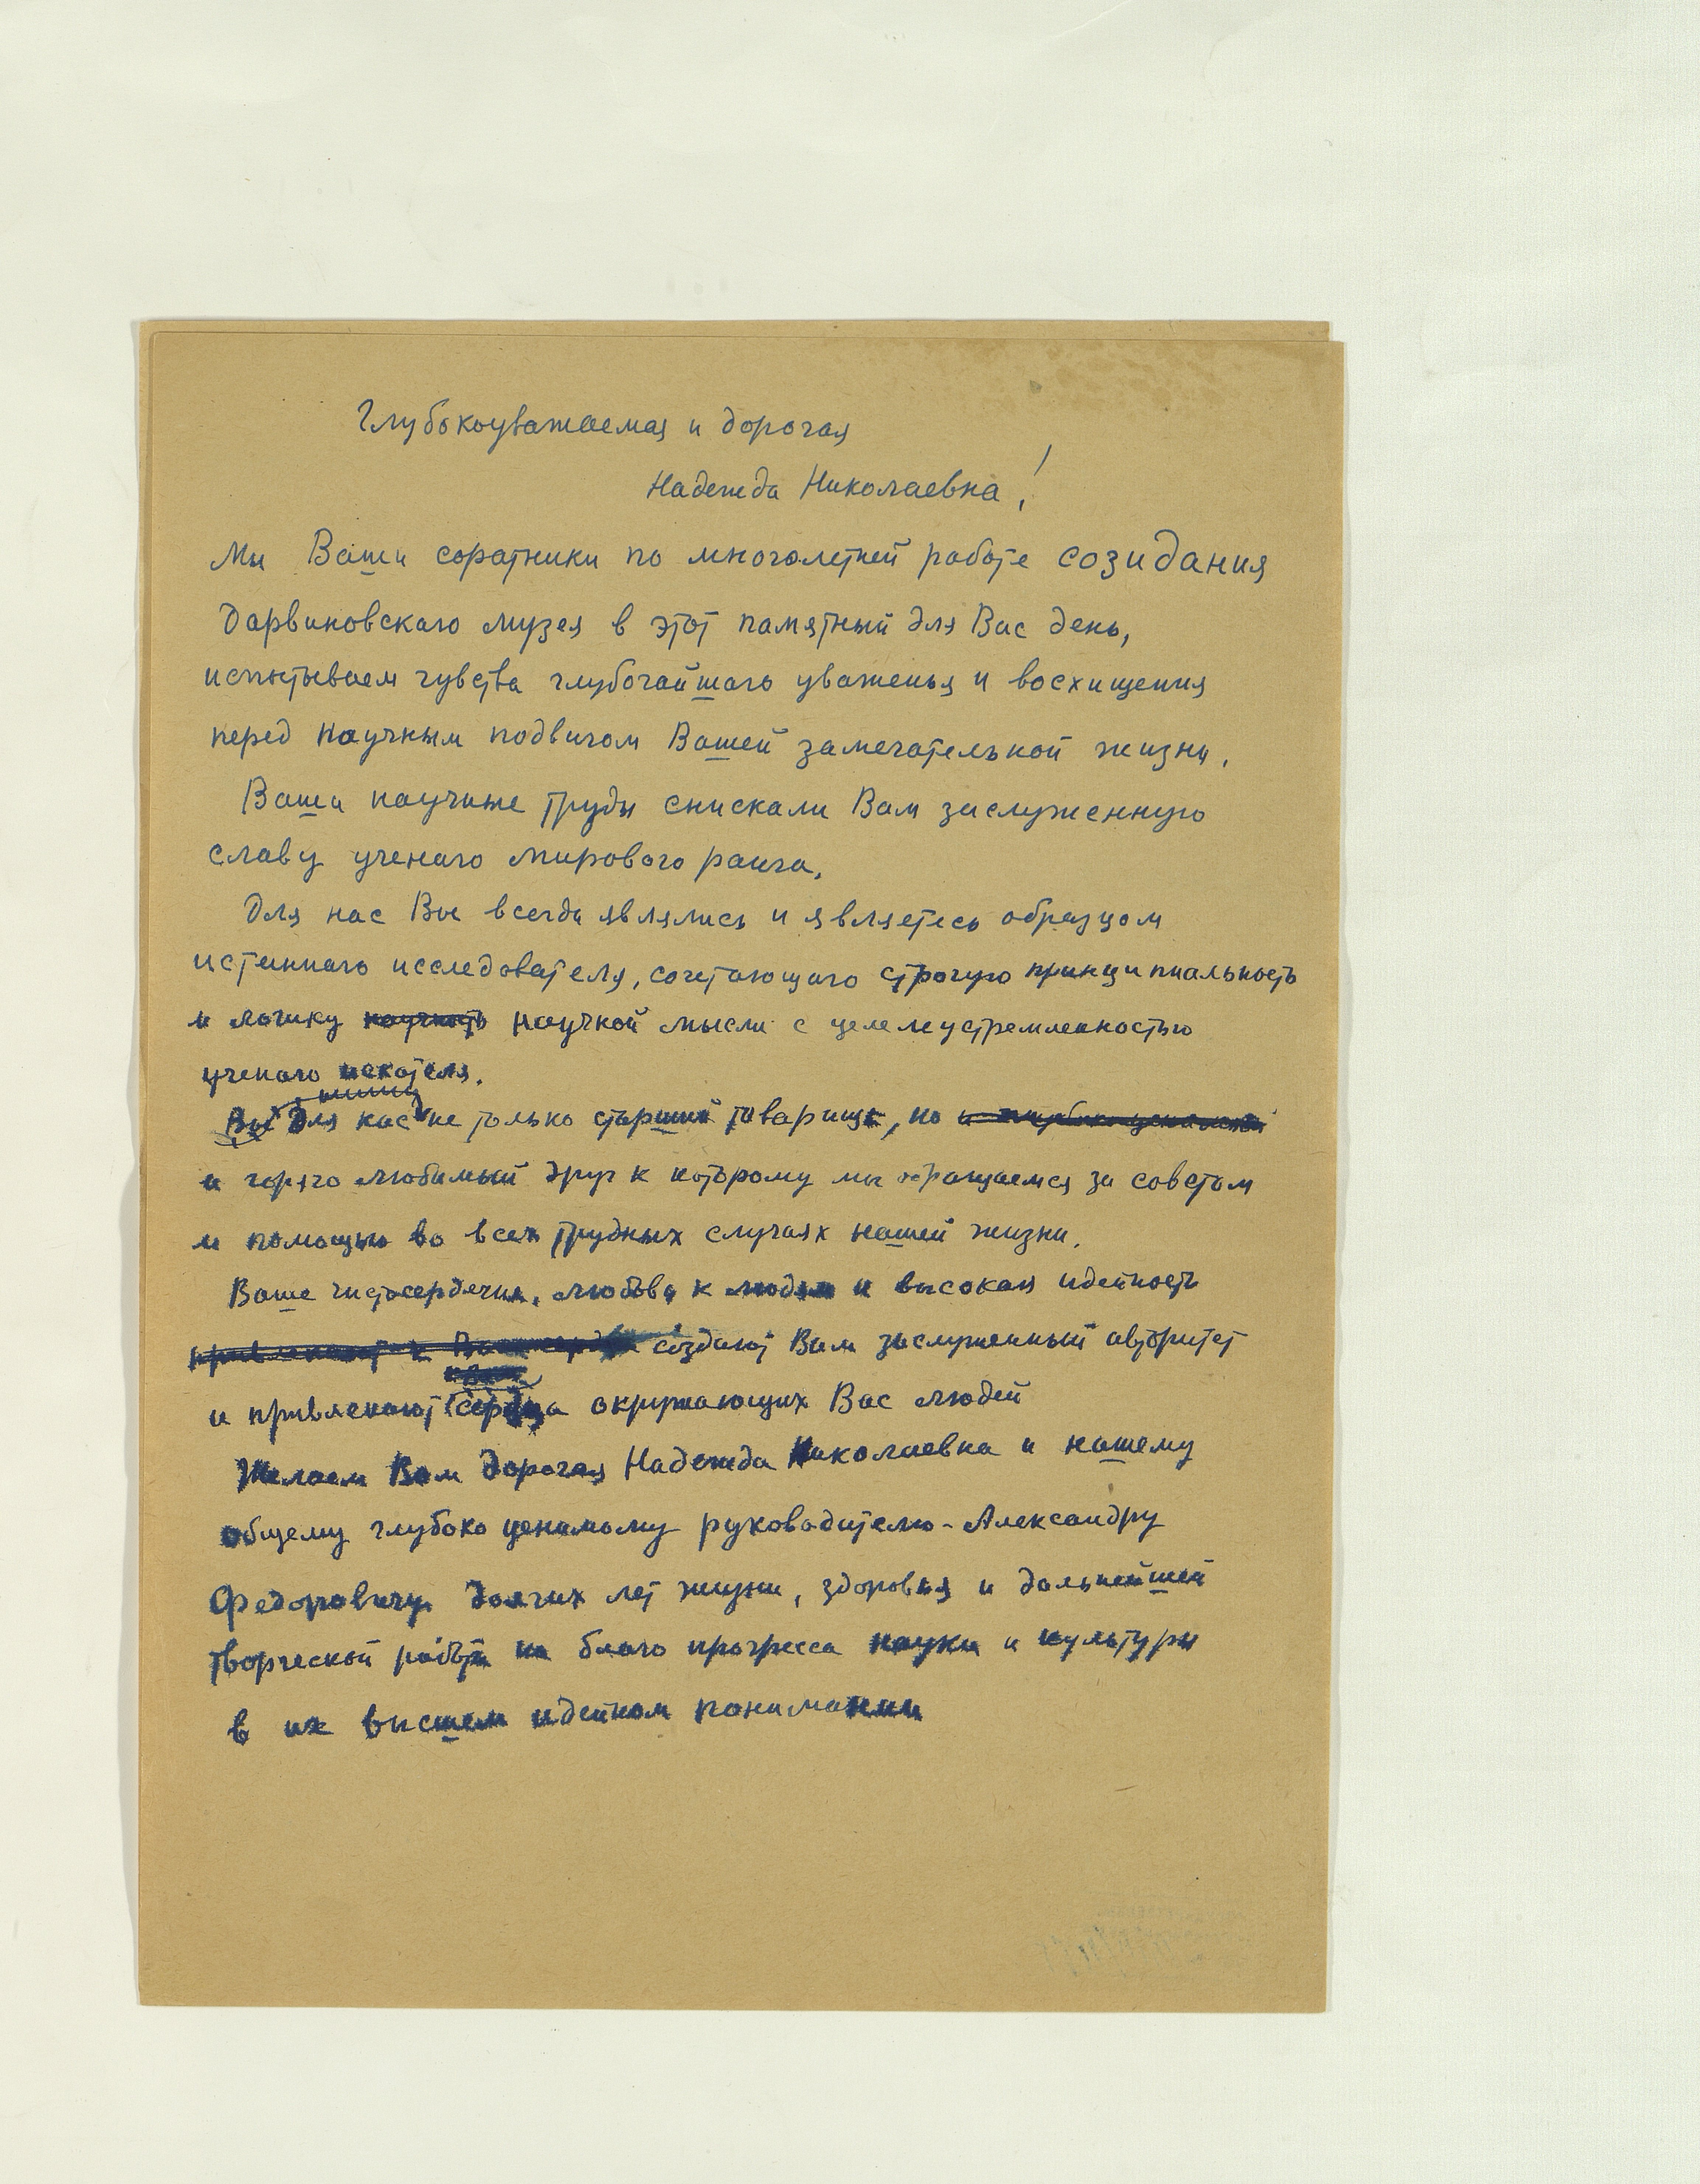 Глубокоуважаемая и дорогая
Надежда Николаевна!
Мы Ваши соратники по многолетней работе созидания
Дарвиновского музея в этот памятный для Вас день,
испытываем чувства глубочайшаго уваженья и восхищения
перед научным подвигом Вашей замечательной жизни.
Ваши научные труды снискали Вам заслуженную
славу ученаго мирового ранга.
Для нас Вы всегда являлись и являетесь образцом
истиннаго исследователя, сочетающаго строгую принципиальность
и логику научность научной мысли с целеустремленностью
ученаго искателя.
Вы для нас не только старший товарищ, но
и горячо любимый друг к которому мы обращаемся за советом
и помощью во всех трудных случаях нашей жизни.
Ваше чистосердечие, любовь к людям и высокая идейность
создают Вам заслуженный авторитет
и привлекают сердца окружающих Вас людей
Желаем Вам дорогая Надежда Николаевна и нашему
общему глубоко ценимому руководителю - Александру
Федоровичу долгих лет жизни, здоровья и дальнейшей
творческой работы на благо прогресса науки и культуры
в их высшем идейном понимании